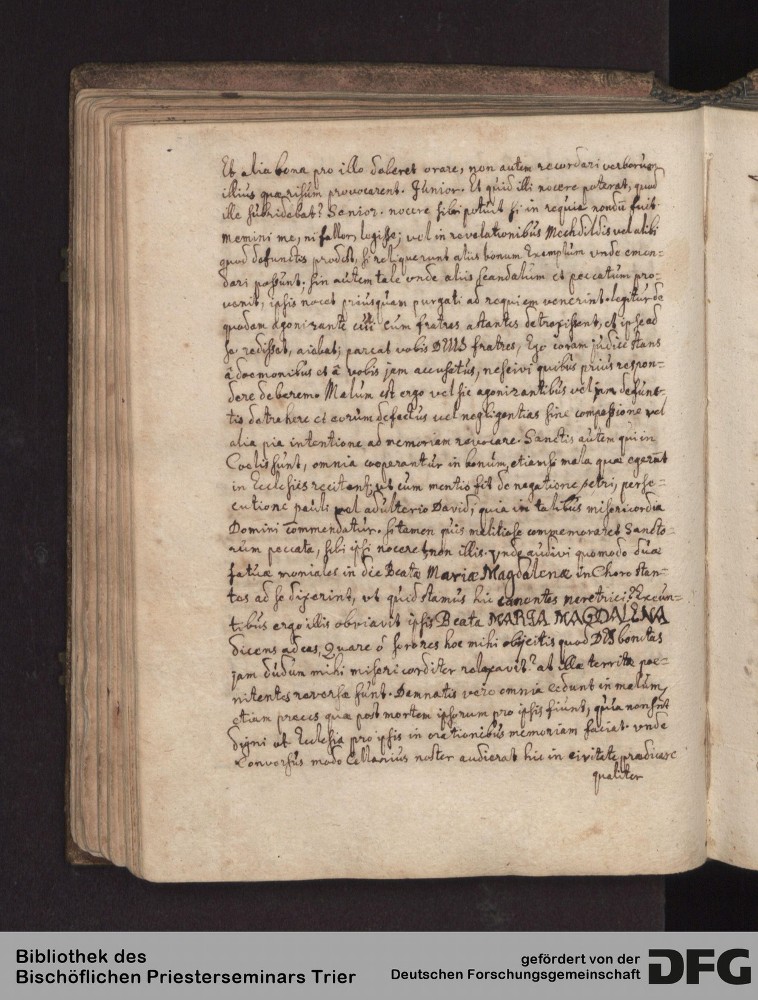 Et alia bona pro illo deberet orare, non autem recordari verborum
illius quæ risum provocarent. Junior. Et quid illi nocere poterat, quod
ille subridebat? Senior. nocere sibi potuit si in requie nondũ fuit
memini me, ni fallor, legisse; vel in revelationibus Mechdildis vel alibi
quod defunctis prodest, si reliquerunt aliis bonum Exemplum unde emen=
dari possunt; sin autem tale unde aliis scandalum et peccatum pro=
venit; ipsis nocet priusquam purgati ad requiem venerint. legitur de
quodam agonizante cui cum fratres astantes detraxissent, et ipse ad
se redisset, aiebat; parcat vobis DNUS fratres, Ego coram judice stans
â dæmonibus et â vobis jam accusatus, nescivi quibus prius respon=
dere deberem. Malum est ergo vel sic agonizantibus vel jam defunc=
tis detrahere et eorum defectus vel negligentias sine compassione vel
alia pia intentione ad memoriam revocare. Sanctis autem qui in
Coelis sunt, omnia cooperantur in bonum, etiamsi mala quæ egerũt
in Ecclesiis recitent; ut cum mentio fit de negatione petri, perse=
cutione pauli vel adulterio David, quia in talibus misericordia
Domini commendatur. si tamen quis malitiose commemoraret Sancto=
rum peccata, sibi ipsi noceret non illis. unde audivi quomodo duæ
fatuæ moniales in die Beatæ Mariæ Magdalenæ in Choro stan=
tes ad se dixerint, ut quid stamus hic canentes meretrici? Exeun=
tibus ergo illis obviavit ipsis Beata MARIA MAGDALENA
dicens ad eas, Quare ô sorores hoc mihi objicitis quod DEI bonitas
jam dudum mihi misericorditer relaxavit? at illæ territæ poe=
nitentes reversæ sunt. Damnatis vero omnia cedunt in malum,
etiam preces quæ post mortem ipsorum pro ipsis fiunt, quia non sunt
digni ut Ecclesia pro ipsis in orationibus memoriam faciat. unde
Conversus modo Cellarius noster audierat hic in civitate prædicare
qualiter
Bibliothek des
Bischöflichen Priesterseminars Trier
gefördert von der
Deutschen Forschungsgemeinschaft
DFG